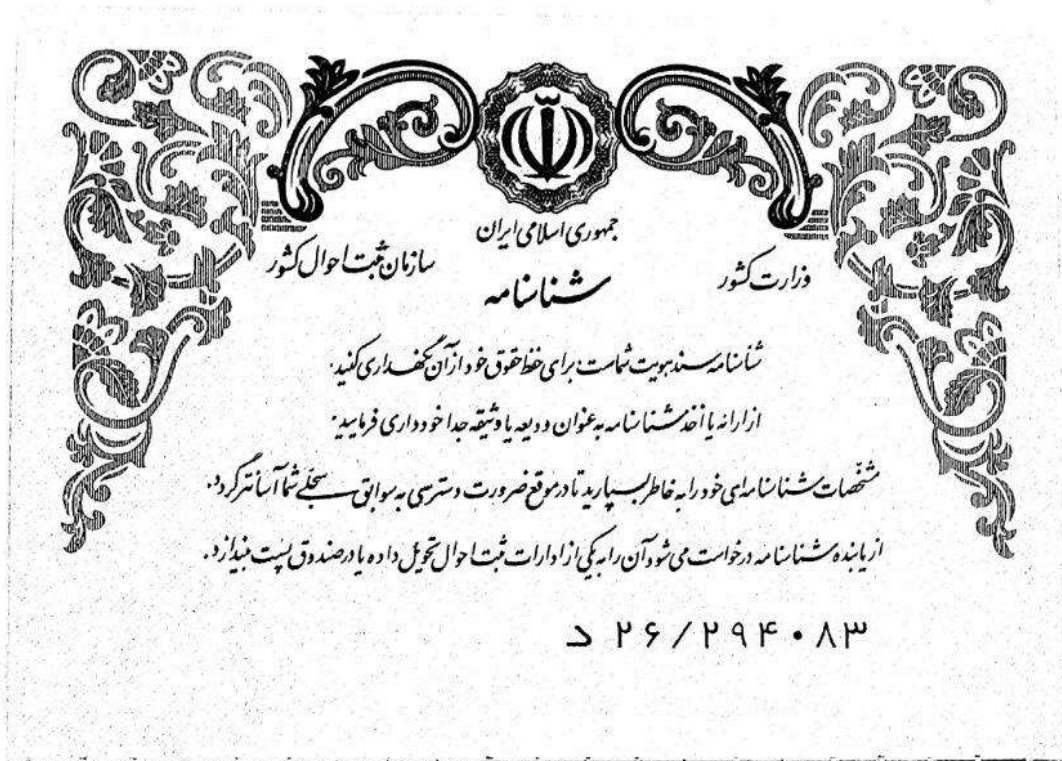 جمهوری اسلامی ایران
وزارت کشور
سازمان ثبت احوال کشور
شناسنامه
شناسنامه سند هویت شماست برای حفظ حقوق خود از آن نگهداری کنید.
از ارائه یا اخذ شناسنامه به عنوان ودیعه یا وثیقه جداً خودداری فرمایید.
مشخصات شناسنامه‌ای خود را به خاطر بسپارید تا در موقع ضرورت دسترسی به سوابق سجلی شما آسانتر گردد.
از یابنده شناسنامه درخواست می شود آن را به یکی از ادارات ثبت احوال تحویل داده یا در صندوق پست بیندازد.
د ۲۶/۲۹۴۰۸۳